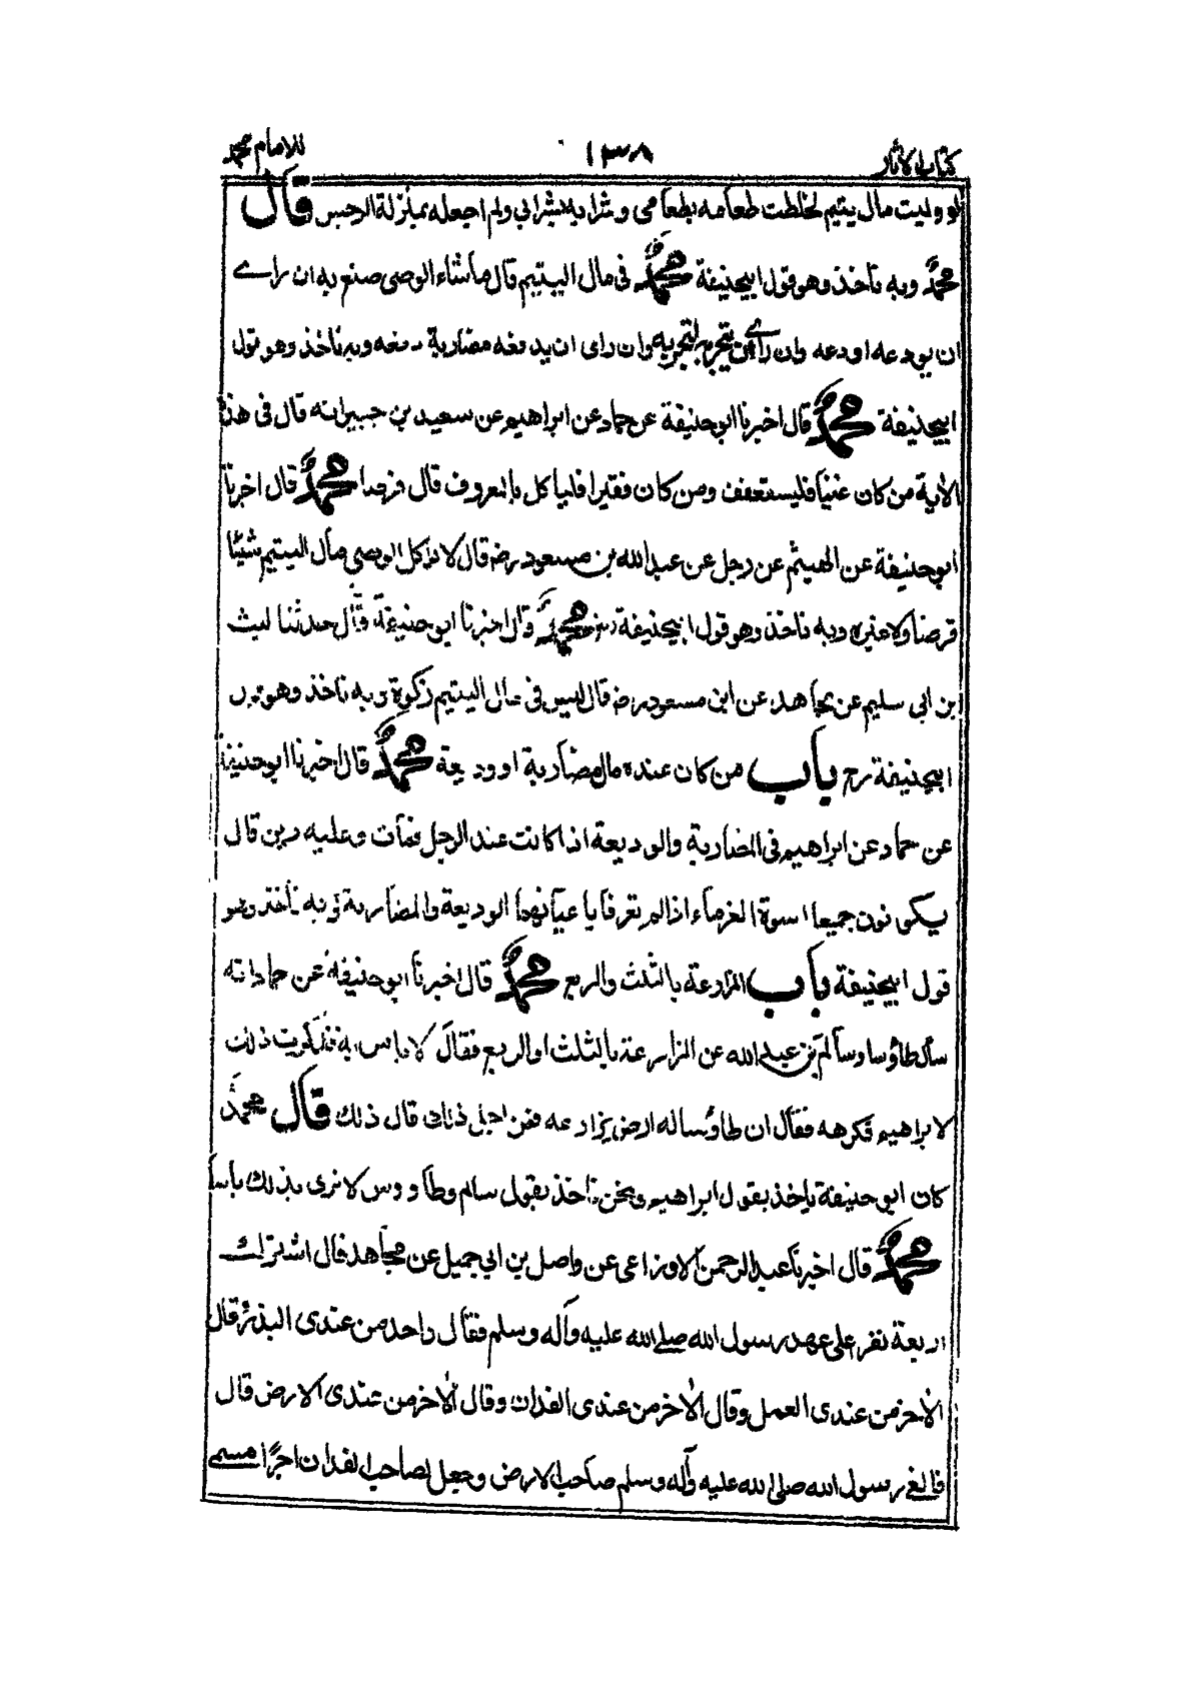 كتاب الاثار ١٣٨ للامام محمد
لو وليت مال يتيم لخلطت طعامه بطعامى وشرابه بشرابى ولم اجعله بمنزلة الرجس قال
محمد وبه ناخذ وهو قول ابيحنيفة محمد فى مال اليتيم قال ما شاء الوصى صنع به ان راے
ان يودعه اودعه وان راے ان يتجر به اتجر به وان راى ان يدفعه مضاربة دفعه وبه ناخذ وهو قول
ابيحنيفة محمد قال اخبرنا ابو حنيفة عن حماد عن ابراهيم عن سعيد بن جبير انه قال فى هذه
الاية من كان غنيا فليستعفف ومن كان فقيرا فلياكل بالمعروف قال قرضا محمد قال اخبرنا
ابو حنيفة عن الهيثم عن رجل عن عبد الله بن مسعود رضـ قال لا ياكل الوصى مال اليتيم شيئا
قرضا ولا غيره وبه ناخذ وهو قول ابيحنيفة رضـ محمد قال اخبرنا ابو حنيفة قال حدثنا ليث
بن ابى سليم عن مجاهد عن ابن مسعود رضـ قال ليس فى مال اليتيم زكوة وبه ناخذ وهو قول
ابيحنيفة رح باب من كان عنده مال مضاربة او وديعة محمد قال اخبرنا ابو حنيفة
عن حماد عن ابراهيم فى المضاربة والوديعة اذا كانت عند الرجل فمات وعليه دين قال
يكونون جميعا اسوة الغرماء اذا لم تعرفا باعيانهما الوديعة والمضاربة وبه ناخذ وهو
قول ابيحنيفة باب المزارعة بالثلث والربع محمد قال اخبرنا ابو حنيفة عن حماد انه
سأل طاؤسا وسالم بن عبد الله عن المزارعة بالثلث او الربع فقال لا باس به فذكرت ذلك
لابراهيم فكرهه فقال ان طاؤسا له ارض يزارعه فمن اجل ذلك قال ذلك قال محمد
كان ابو حنيفة ياخذ بقول ابراهيم ونحن ناخذ بقول سالم وطاووس لا نرى بذلك باسا
محمد قال اخبرنا عبد الرحمن الاوزاعى عن واصل بن ابي جميل عن مجاهد قال اشترك
اربعة نفر على عهد رسول الله صلى الله عليه وآله وسلم فقال واحد من عندى البذر قال
الاخر من عندى العمل وقال الاخر من عندى الفدان وقال الاخر من عندى الارض قال
فالغى رسول الله صلى الله عليه وآله وسلم صاحب الارض وجعل لصاحب الفدان اجرا مسمى